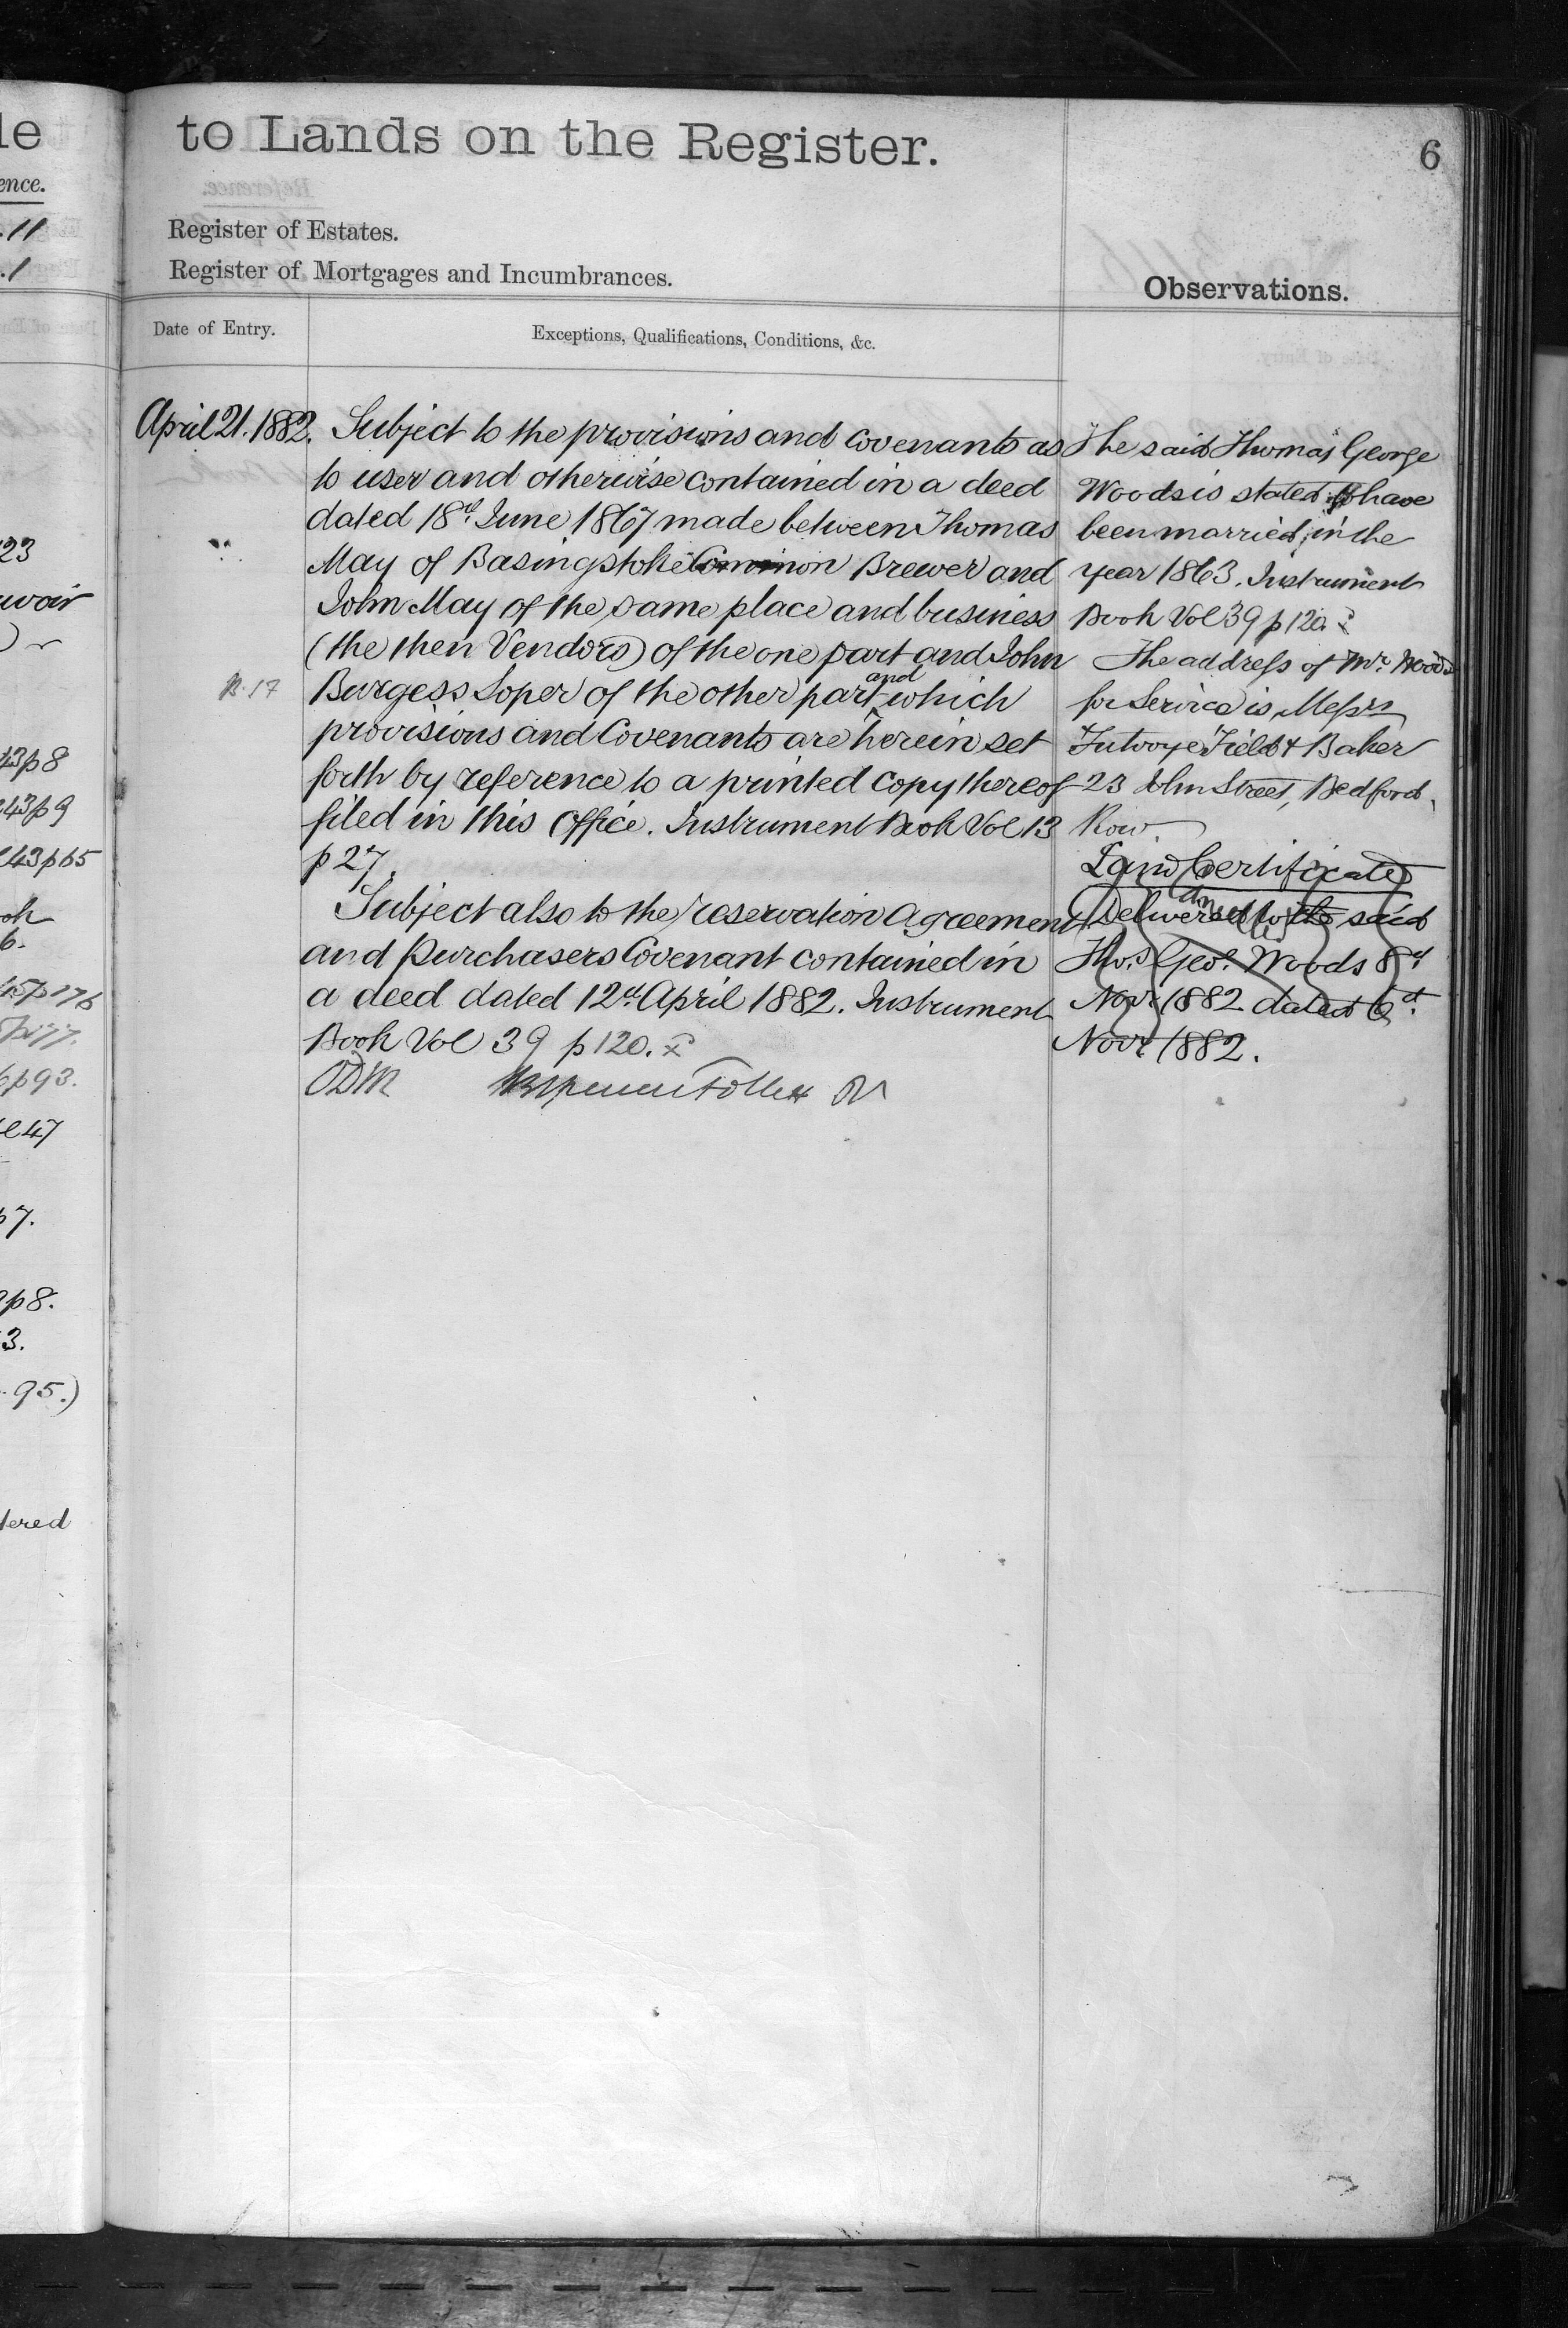 le
ence.
.11
.1
23
uvoir
43p8
43p9
43p65
6.
p176
p177.
6p93.
47
p7.
p8.
3.
.95.)
tered
to Lands on the Register.
6
Register of Estates.
Register of Mortgages and Incumbrances.
Observations.
Date of Entry.
Exceptions, Qualifications, Conditions, &c.
April 21. 1882.
Subject to the provisions and Covenants as
to user and otherwise contained in a deed
dated 18th June 1867 made between Thomas
May of Basingstoke Common Brewer and
John May of the same place and business
(the then Vendors) of the one part and John
17
Burgess Soper of the other part and which
provisions and Covenants are herein set
forth by reference to a printed copy thereof
filed in this Office. Instrument Book Vol 13
p 27.
Subject also to the reservation Agreement
and Purchasers Covenant contained in
a deed dated 12th April 1882. Instrument
Book Vol 39 p 120. x
The said Thomas George
Woods is stated to have
been married in the
year 1863. Instrument
Book Vol 39 p 120. x
The address of Mr. Woods
for Service is Messrs
Futvoye Field & Baker
23 John Street, Bedford
Row.
Land Certificate
Delivered to the said
Thos. Geo. Woods 8th
Novr 1882 dated 6th
Novr 1882.